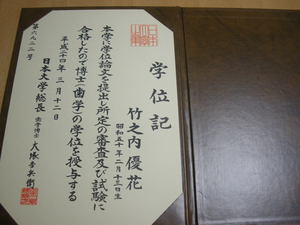 学位記
竹之内 優花
昭和五十年二月十三日生
本学に学位論文を提出し所定の審査及び試験に
合格したので博士(歯学)の学位を授与する
平成二十四年三月十二日
日本大学総長 歯学博士 大塚吉兵衛
第六九二二号